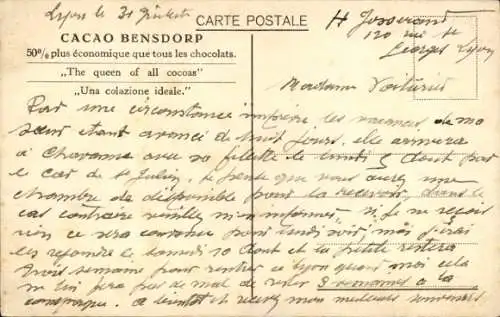 Lyon le 31 Juillet
CARTE POSTALE
H Josserand
120 rue St
Georges Lyon
CACAO BENSDORP
50% plus économique que tous les chocolats.
„The queen of all cocoas"
„Una colazione ideale."
Madame Voiturier
Par une circonstance imprévue les vacances de ma
sœur étant avancé de huit jours, elle arrivera
à Chavanne avec sa fillette le lundi 5 Aout par
le car de St Julien. Je pense que vous aurez une
chambre de disponible pour la recevoir, dans le
cas contraire veuillez m'en informer, si je ne reçois
rien ce sera convenu pour lundi soir, moi j'irai
les rejoindre le samedi 10 Aout et la petite restera
trois semaines pour rentrer à Lyon quant moi cela
ne lui fera pas de mal de rester 3 semaines à la
campagne. A bientôt et recevez mon meilleurs souvenirs